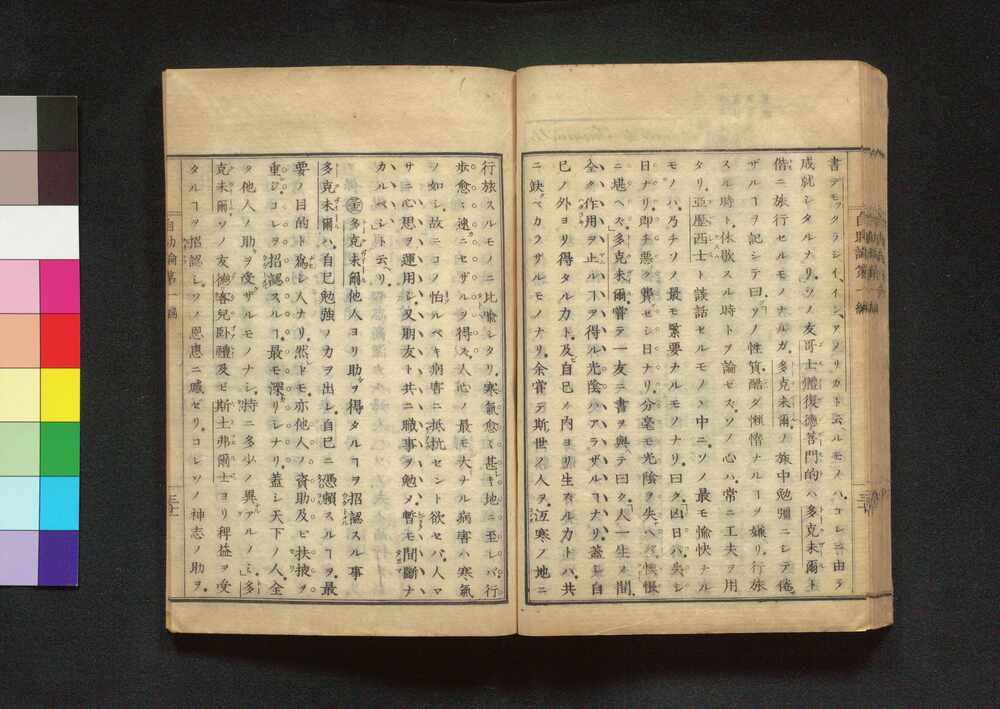 書「デモックラシイ、イン、アメリカト云ルモノハ、コレニ由テ
成就シタルナリ。ソノ友哥士體復德菩門的ハ、多克未爾ト
偕ニ旅行セルモノナルガ、多克未爾ノ旅中勉彊ニシテ倦
ザルヿヲ記シテ曰、ソノ性質酷ダ懶惰ナルヿヲ嫌リ。行旅
スル時ト、休歇スル時トヲ論ゼズ、ソノ心ハ、常ニ工夫ヲ用
タリ。亞歷西士ト談話セルモノヽ中ニ、ソノ最モ愉快ナル
モノハ、乃チソノ最モ緊要ナルモノナリ。曰ク、凶日ハ、失シ
日ナリ。即チ悪ク費セシ日ナリ、分毫モ光陰ヲ失ヘバ、悵悵
ニ堪ヘズ。多克未爾嘗テ一友ニ書ヲ與テ曰ク、人一生ノ間、
全ク作用ヲ止ルヿヲ得ル光陰ハ、アラザルヿナリ。蓋シ自
己ノ外ヨリ得タル力ト、及自己ノ內ヨリ生ズル力トハ、共
ニ缺ベカラザルモノナリ。余嘗テ斯世ノ人ヲ、冱寒ノ地ニ
自助論第一編
行旅スルモノニ比喩シタリ。寒氣愈〻甚キ地ニ至レバ、行
歩愈〻速ニセザルヲ得ズ。人心ノ最モ大ナル病害ハ、寒氣
ノ如シ。故ニコノ怕ルベキ病害ニ抵抗セント欲セバ、人マ
サニ心思ヲ運用シ、又朋友ト共ニ職事ヲ勉メ、暫モ間斷ナ
カルベシト云ヘリ。
多克未爾他人ヨリ助ヲ得タルヿヲ招認スル事
多克未爾ハ、自己勉強ノ力ヲ出シ、自己ニ憑賴スルヿヲ、最
要ノ目的ト爲シ人ナリ。然ドモ、亦他人ノ資助及ビ扶掖ヲ
重シ、コレヲ招認スルヿ、最モ深リシナリ。蓋シ天下ノ人、全
ク他人ノ助ヲ受ザルモノナシ。特ニ多少ノ異アルノミ。多
克未爾ソノ友德客兒臥禮及ビ斯士弗爾士ヨリ、稗益ヲ受
タルヿヲ招認シ、ソノ恩惠ニ感ゼリ。コレソノ神志ノ助ヲ、
自助論第一編